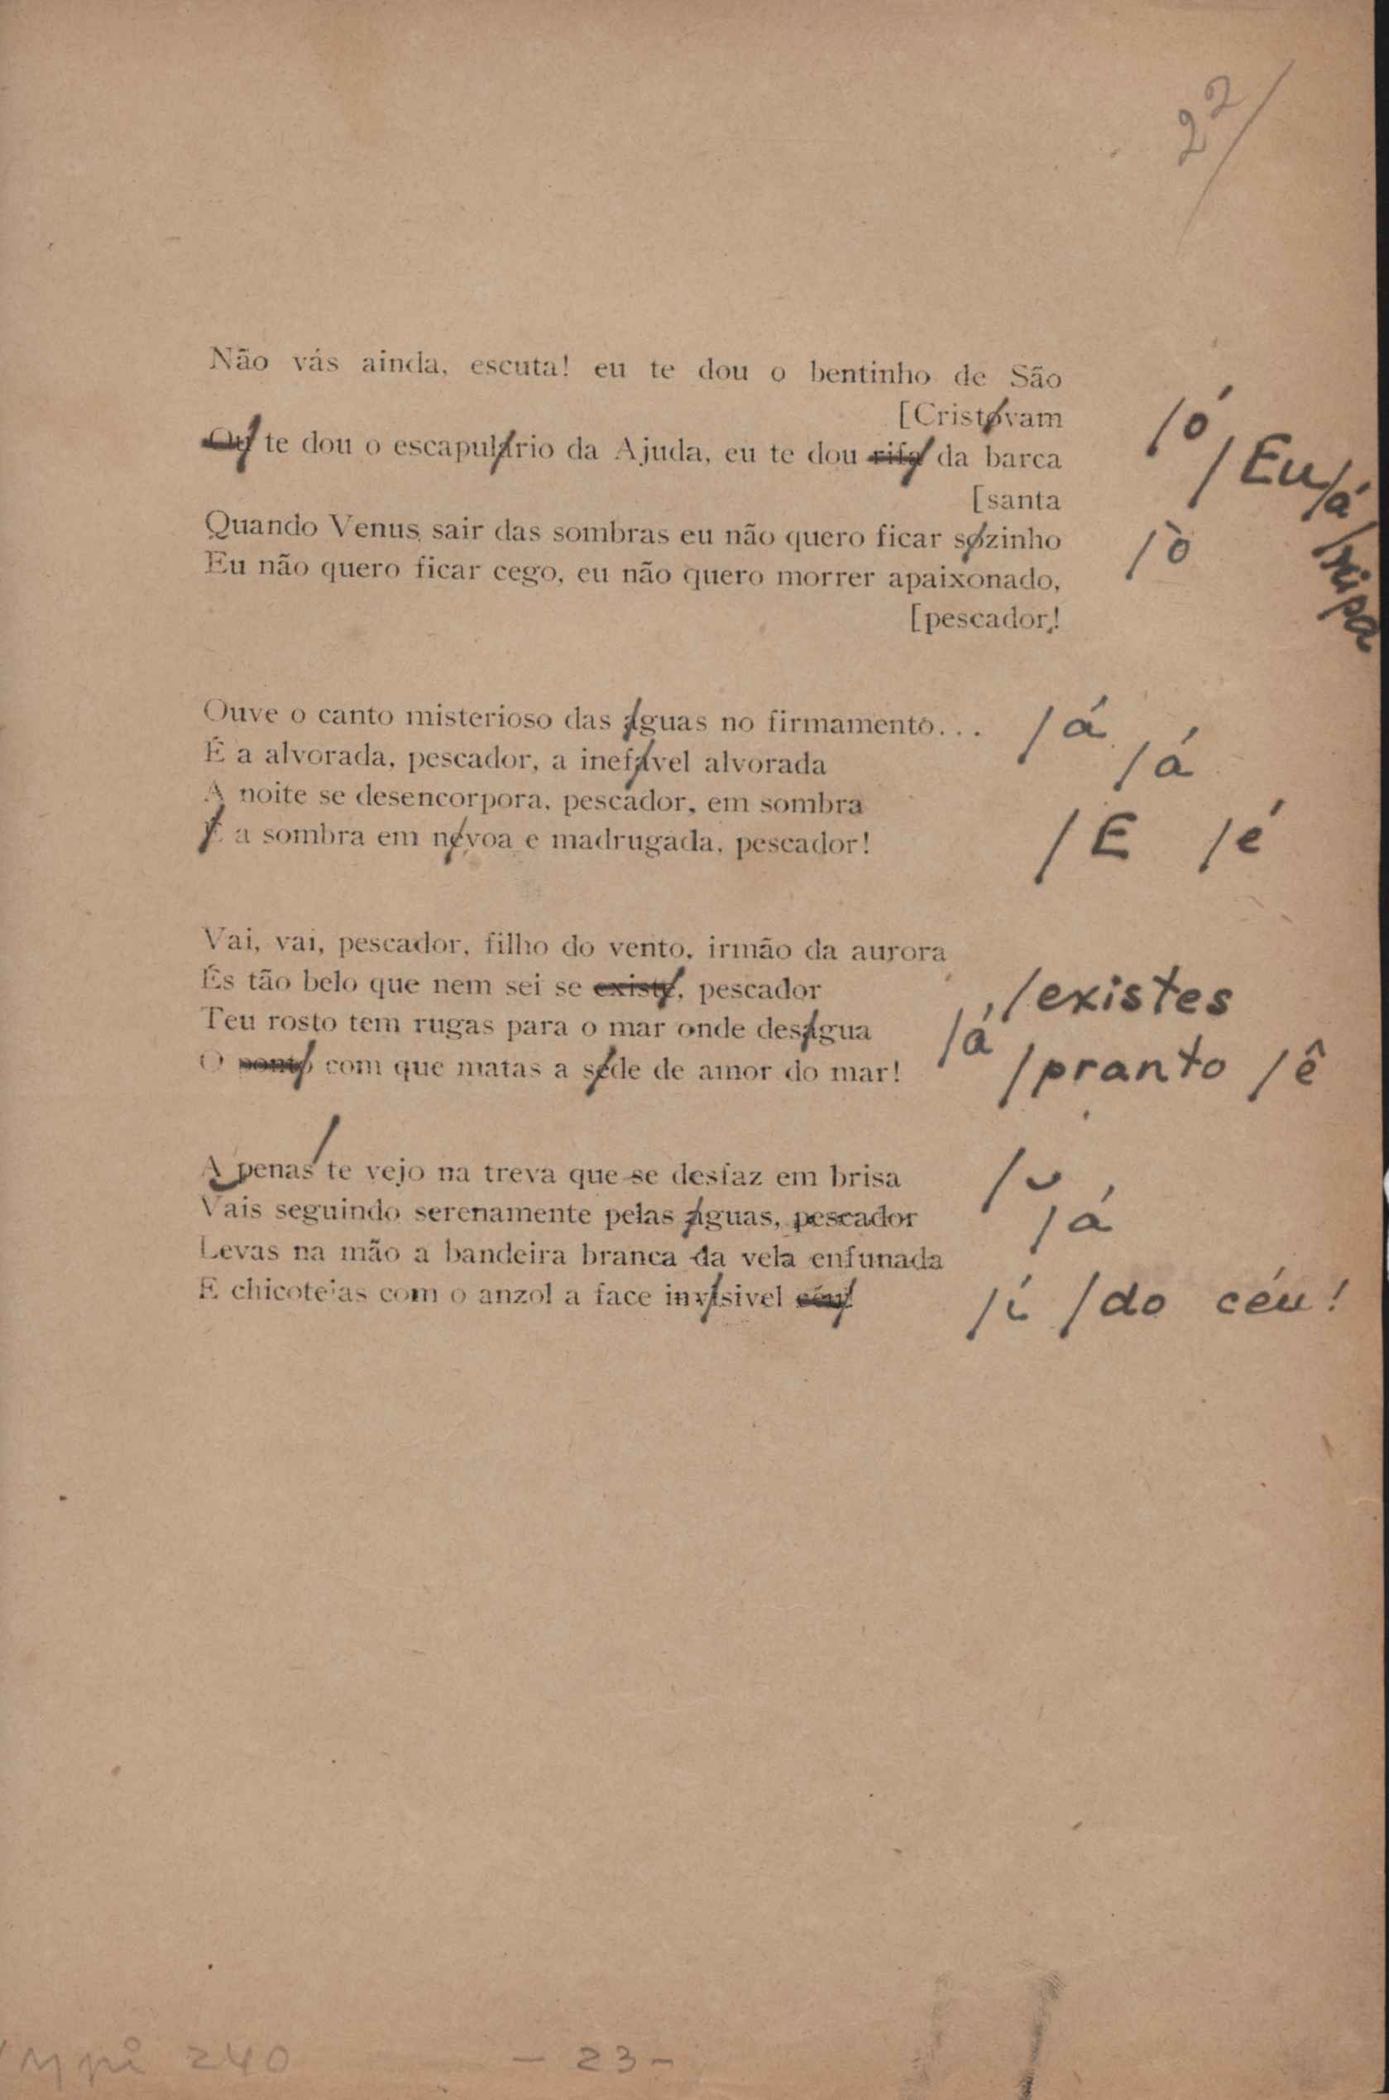 22/
Não vás ainda, escuta! eu te dou o bentinho de São
[Cristovam /ó
te dou o escapulario da Ajuda, eu te dou rifa da barca /Eu /á /ripa
[santa
Quando Venus sair das sombras eu não quero ficar sozinho /ò
Eu não quero ficar cego, eu não quero morrer apaixonado,
[pescador!
Ouve o canto misterioso das águas no firmamento... /á
É a alvorada, pescador, a inefavel alvorada /á
A noite se desencorpora, pescador, em sombra
É a sombra em nevoa e madrugada, pescador! /E /é
Vai, vai, pescador, filho do vento, irmão da aurora
És tão belo que nem sei se existe, pescador /existes
Teu rosto tem rugas para o mar onde deságua /á
O ponto com que matas a sede de amor do mar! /pranto /ê
A penas te vejo na treva que se desfaz em brisa /
Vais seguindo serenamente pelas águas, pescador /á
Levas na mão a bandeira branca da vela enfunada
E chicoteias com o anzol a face invisivel céu! /í /do céu!
240
- 23 -